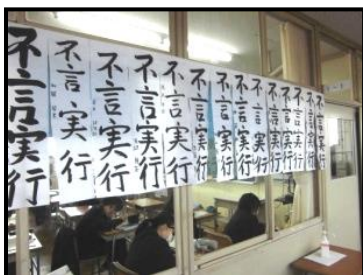 不言実行
不言実行
不言実行
不言実行
不言実行
不言実行
不言実行
不言実行
不言実行
不言実行
不言実行
不言実行
不言実行